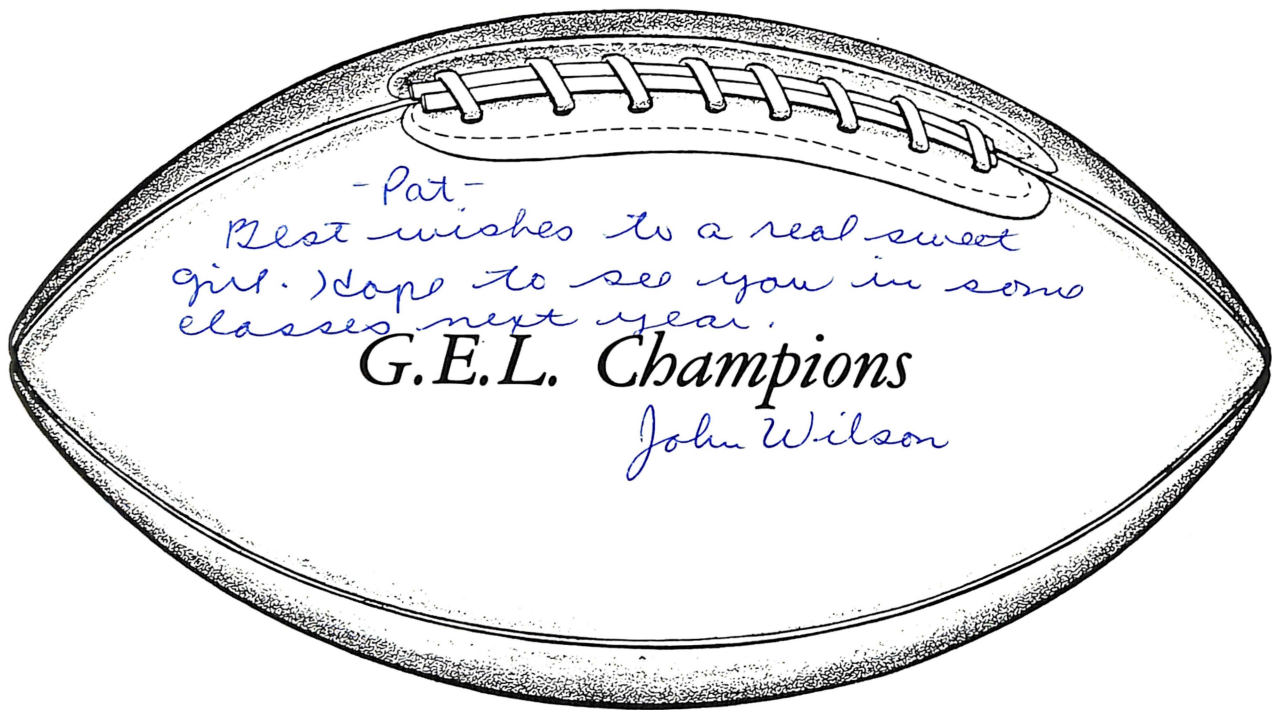 -Pat-
Best wishes to a real sweet
girl. Hope to see you in some
classes next year.
G.E.L. Champions
John Wilson